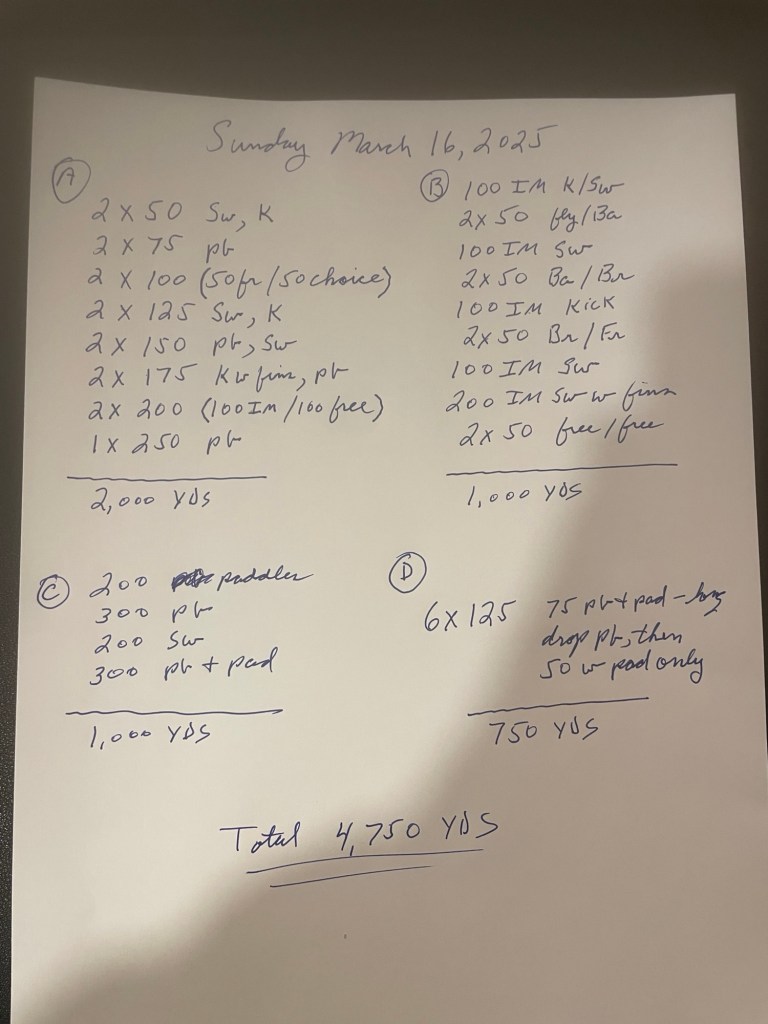 Sunday March 16, 2025
A
2 x 50 Sw, K
2 x 75 pb
2 x 100 (50fr/50choice)
2 x 125 Sw, K
2 x 150 pb, Sw
2 x 175 K w fins, pb
2x 200 (100 Im/100 free)
1 x 250 pb
2,000 YDS
B 100 IM K/Sw
2x 50 fly/Ba
100 IM Sw
2x50 Ba/Br
100 IM Kick
2x50 Br/Fr
100 IM Sw
200 IM Sw w fins
2x 50 free/free
1,000 YDS
C 200 paddles
300 pb
200 Sw
300 pb + pad
1,000 YDS
D
6x125 75 pb + pad -
drop pb, then
50 w pad only
750 YDS
Total 4,750 YDS